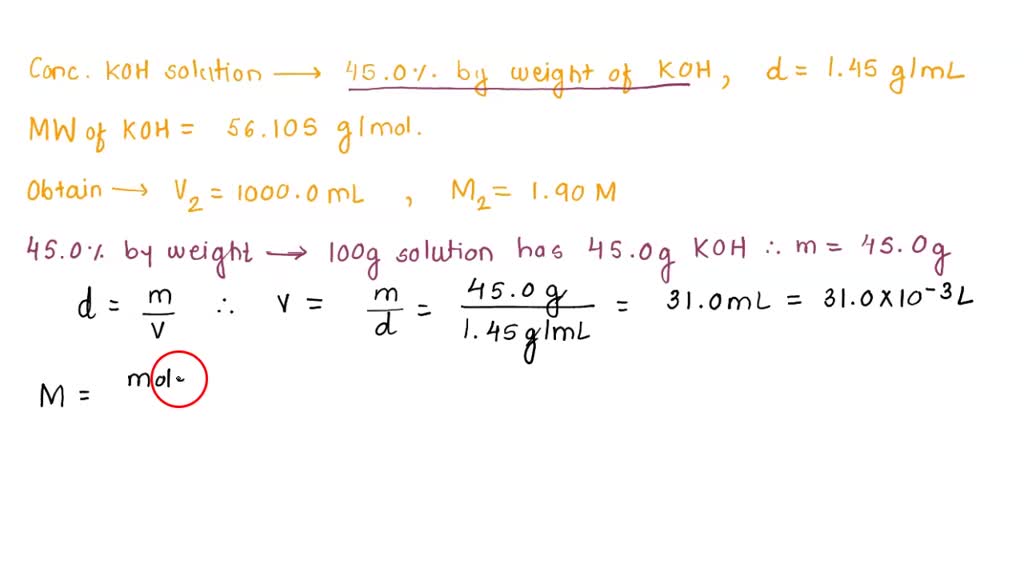 Conc. KOH solution → 45.0% by weight of KOH, d = 1.45 g/mL
MW of KOH = 56.105 g/mol.
Obtain → V₂ = 1000.0 mL , M₂ = 1.90 M
45.0% by weight → 100g solution has 45.0g KOH ∴ m = 45.0g
d = m/V ∴ V = m/d = 45.0 g / 1.45 g/mL = 31.0 mL = 31.0 × 10⁻³ L
M = mol